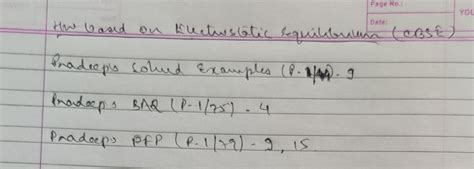 Page No.:
Date:
YOU
HW based on Electrostatic Equilibrium (CBSE)
Pradeep's Solved Examples (P. 1/ - 9
Pradeep's BAQ (P-1/75) - 4
Pradeep's PFP (P-1/79) - 9, 15